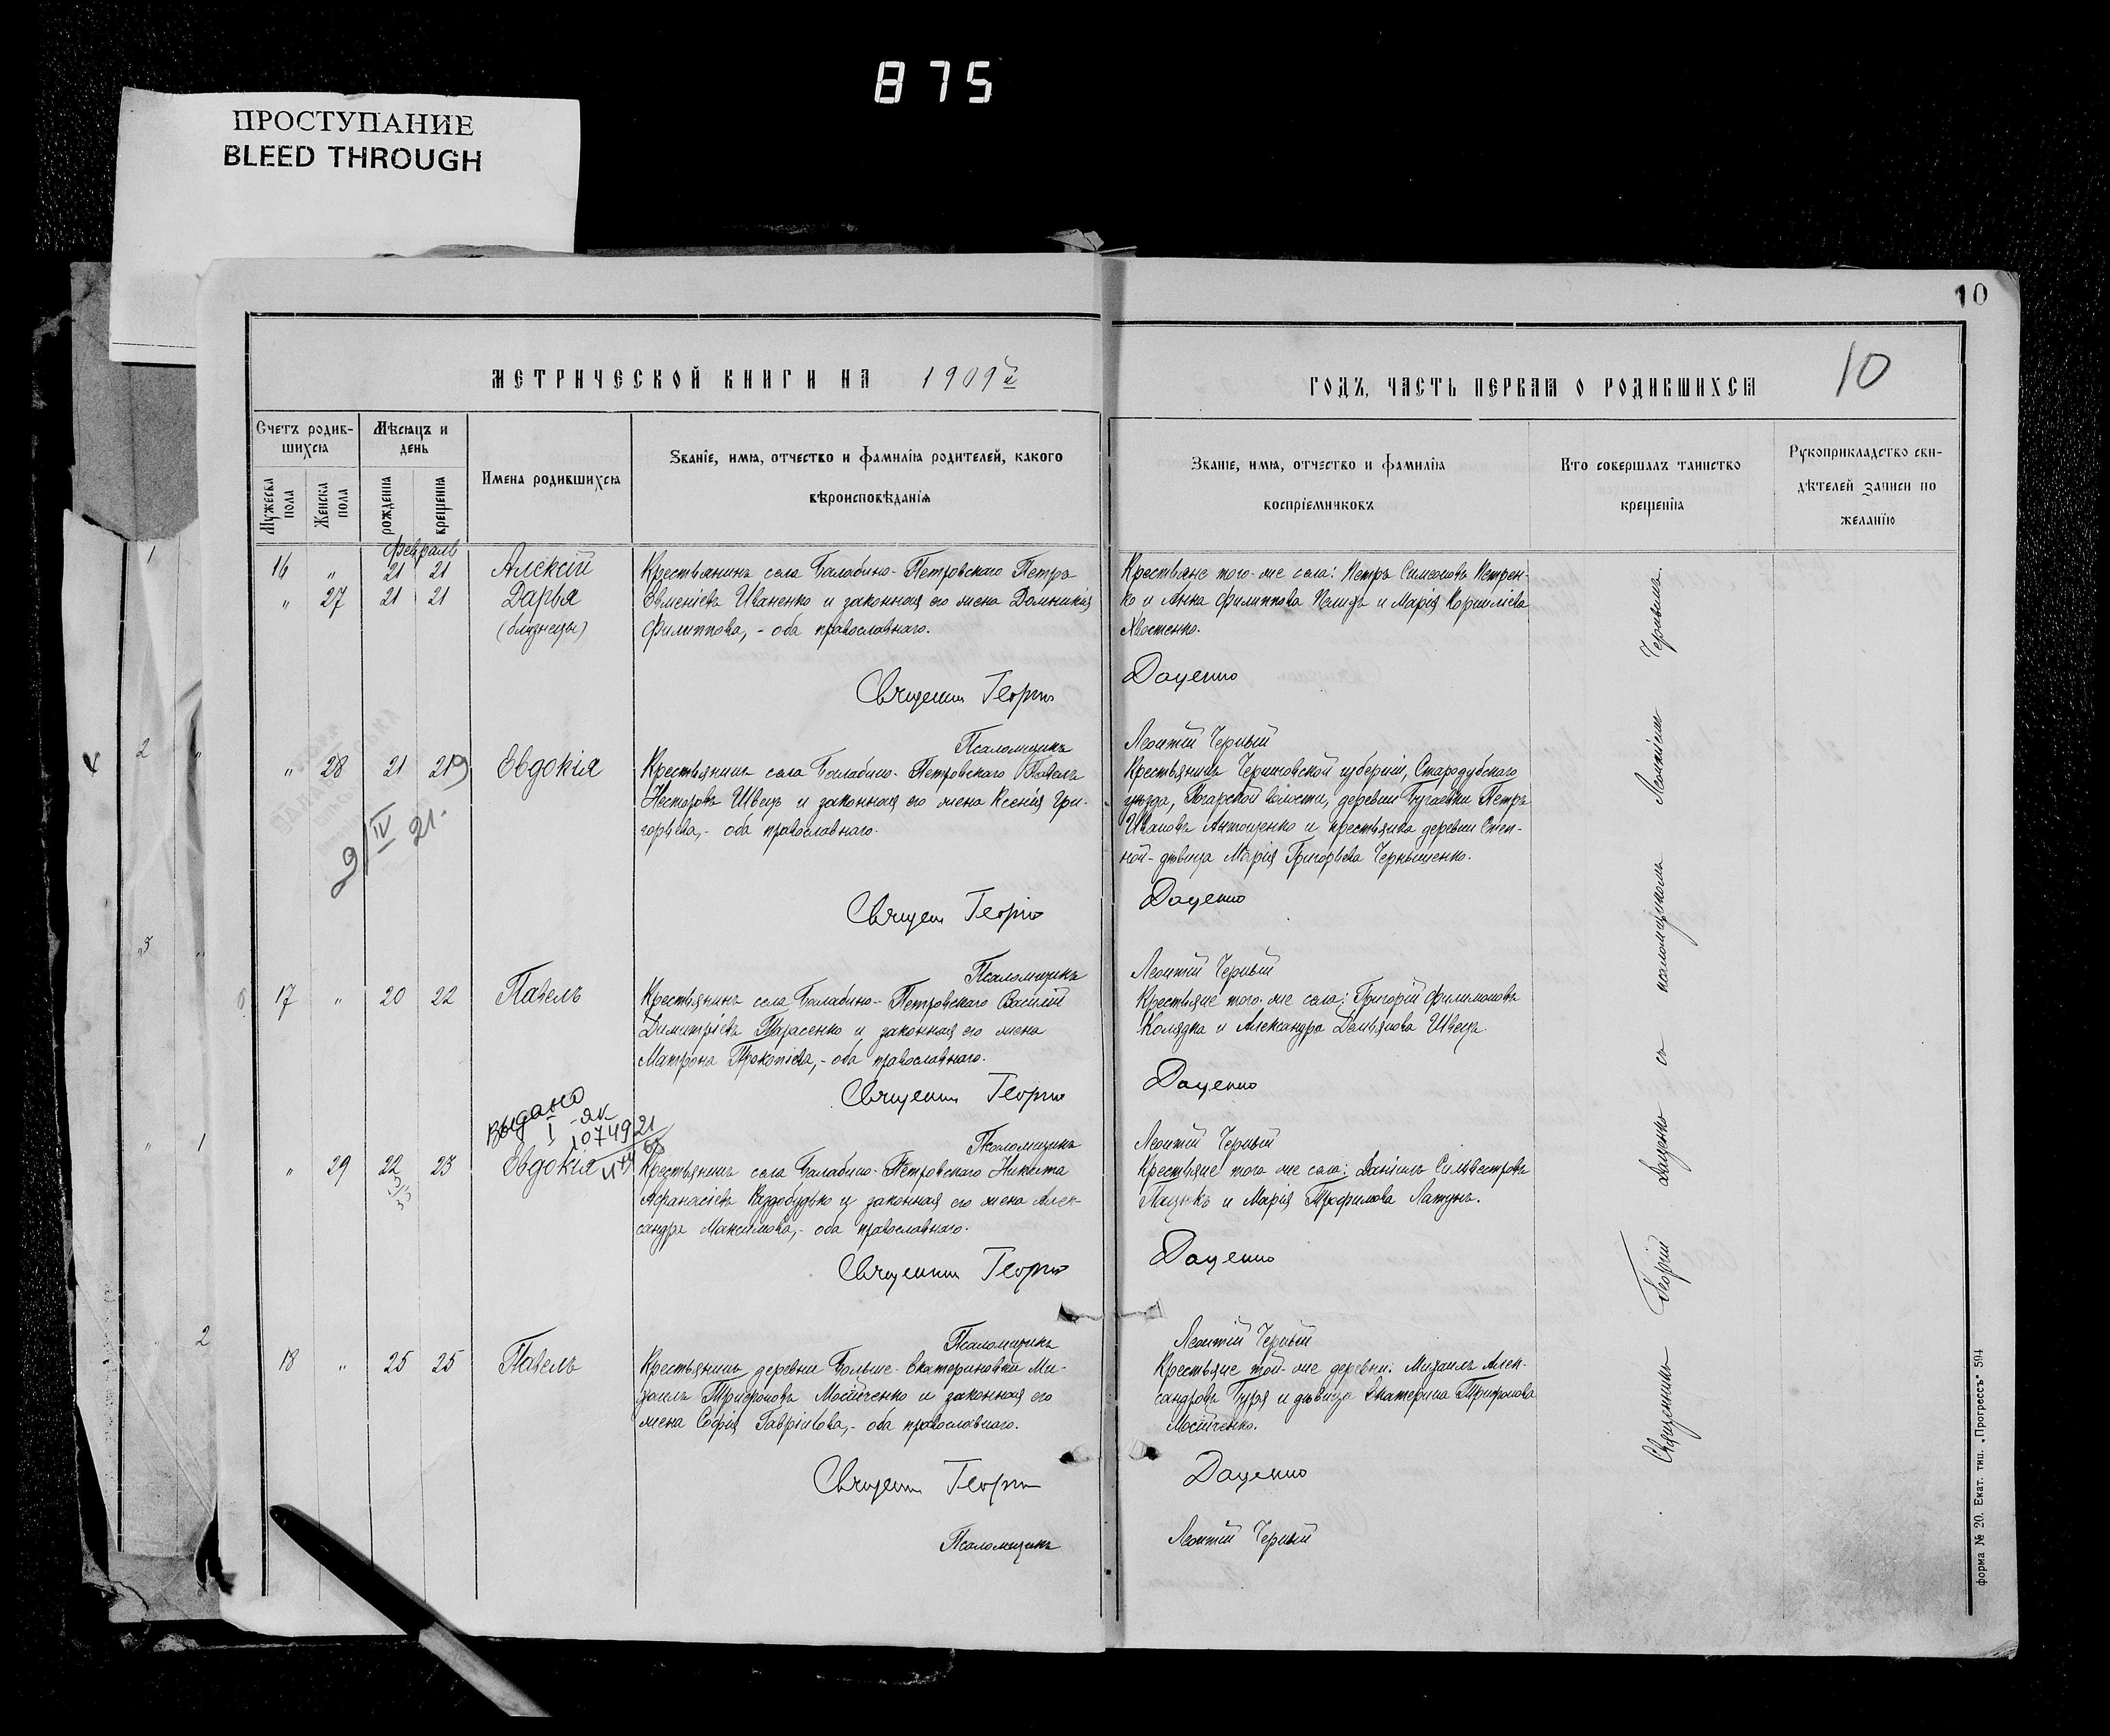 875
ПРОСТУПАНИЕ
BLEED THROUGH
10
МЕТРИЧЕСКОЙ КНИГИ НА 1909й
ГОДЪ, ЧАСТЬ ПЕРВАЯ О РОДИВШИХСЯ
10
Счетъ родив-
шихся
Мужеска пола
Женска пола
Мѣсяцъ и
день
рожденія
крещенія
Имена родившихся
Званіе, имя, отчество и фамилія родителей, какого
вѣроисповѣданія
Званіе, имя, отчество и фамилія
воспріемниковъ
Кто совершалъ таинство
крещенія
Рукоприкладство сви-
дѣтелей записи по
желанію
Февраль
16 " 21 21 Алексій
" 27 21 21 Дарья
(близнецы)
Крестьянинъ села Балабино-Петровскаго Петръ
Евменіевъ Иваненко и законная его жена Домникія
Филиппова,- оба православнаго.
Крестьяне того-же села: Петръ Симеоновъ Петрен-
ко и Анна Филиппова Пелихъ и Марія Корниліева
Хвостенко.
Священник Георгій Даценко
Псаломщикъ Леонтій Черный
" 28 21 21 Евдокія
9/IV 21.
Крестьянинъ села Балабино-Петровскаго Павелъ
Несторовъ Швецъ и законная его жена Ксенія Гри-
горьева,- оба православнаго.
Крестьянинъ Черниговской губерніи, Стародубскаго
уѣзда, Погарской волости, деревни Бугаевки Петръ
Ивановъ Антощенко и крестьянка деревни Степ-
ной-дѣвица Марія Григорьева Чернышенко.
Священ Георгій Даценко
Псаломщикъ Леонтій Черный
17 " 20 22 Павелъ
Крестьянинъ села Балабино-Петровскаго Василій
Димитріевъ Тарасенко и законная его жена
Матрона Прокопіева,- оба православнаго.
Крестьяне того-же села: Григорій Филимоновъ
Колядка и Александра Демьянова Швецъ.
Священник Георгій Даценко
Псаломщикъ Леонтій Черный
Выдано
I-ЯК
107492
" 29 22 23 Евдокія
Крестьянинъ села Балабино-Петровскаго Никита
Афанасіевъ и законная его жена Алек-
сандра Максимова,- оба православнаго.
Крестьяне того же села: Даніилъ Сильвестровъ
и Марія Трофимова Латунъ.
Священник Георгій Даценко
Псаломщикъ Леонтій Черный
18 " 25 25 Павелъ
Крестьянинъ деревни Больше-Екатериновки Ми-
хаилъ Трифоновъ Мостиченко и законная его
жена Софія Гавріилова,- оба православнаго.
Крестьяне той-же деревни: Михаилъ Алек-
сандровъ Буря и дѣвица Екатерина Трифонова
Мостиченко.
Священ Георгій Даценко
Псаломщикъ Леонтій Черный
Священникъ Георгій Даценко съ псаломщикомъ Леонтіемъ Чернымъ.
форма № 20. Екат. тип. „Прогрессъ" 594